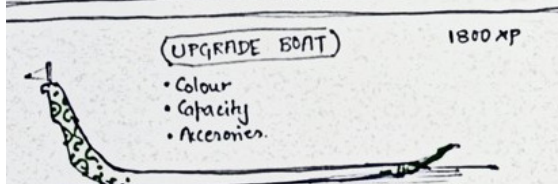 UPGRADE BOAT
1800 XP
• Colour
• Capacity
• Accesories.